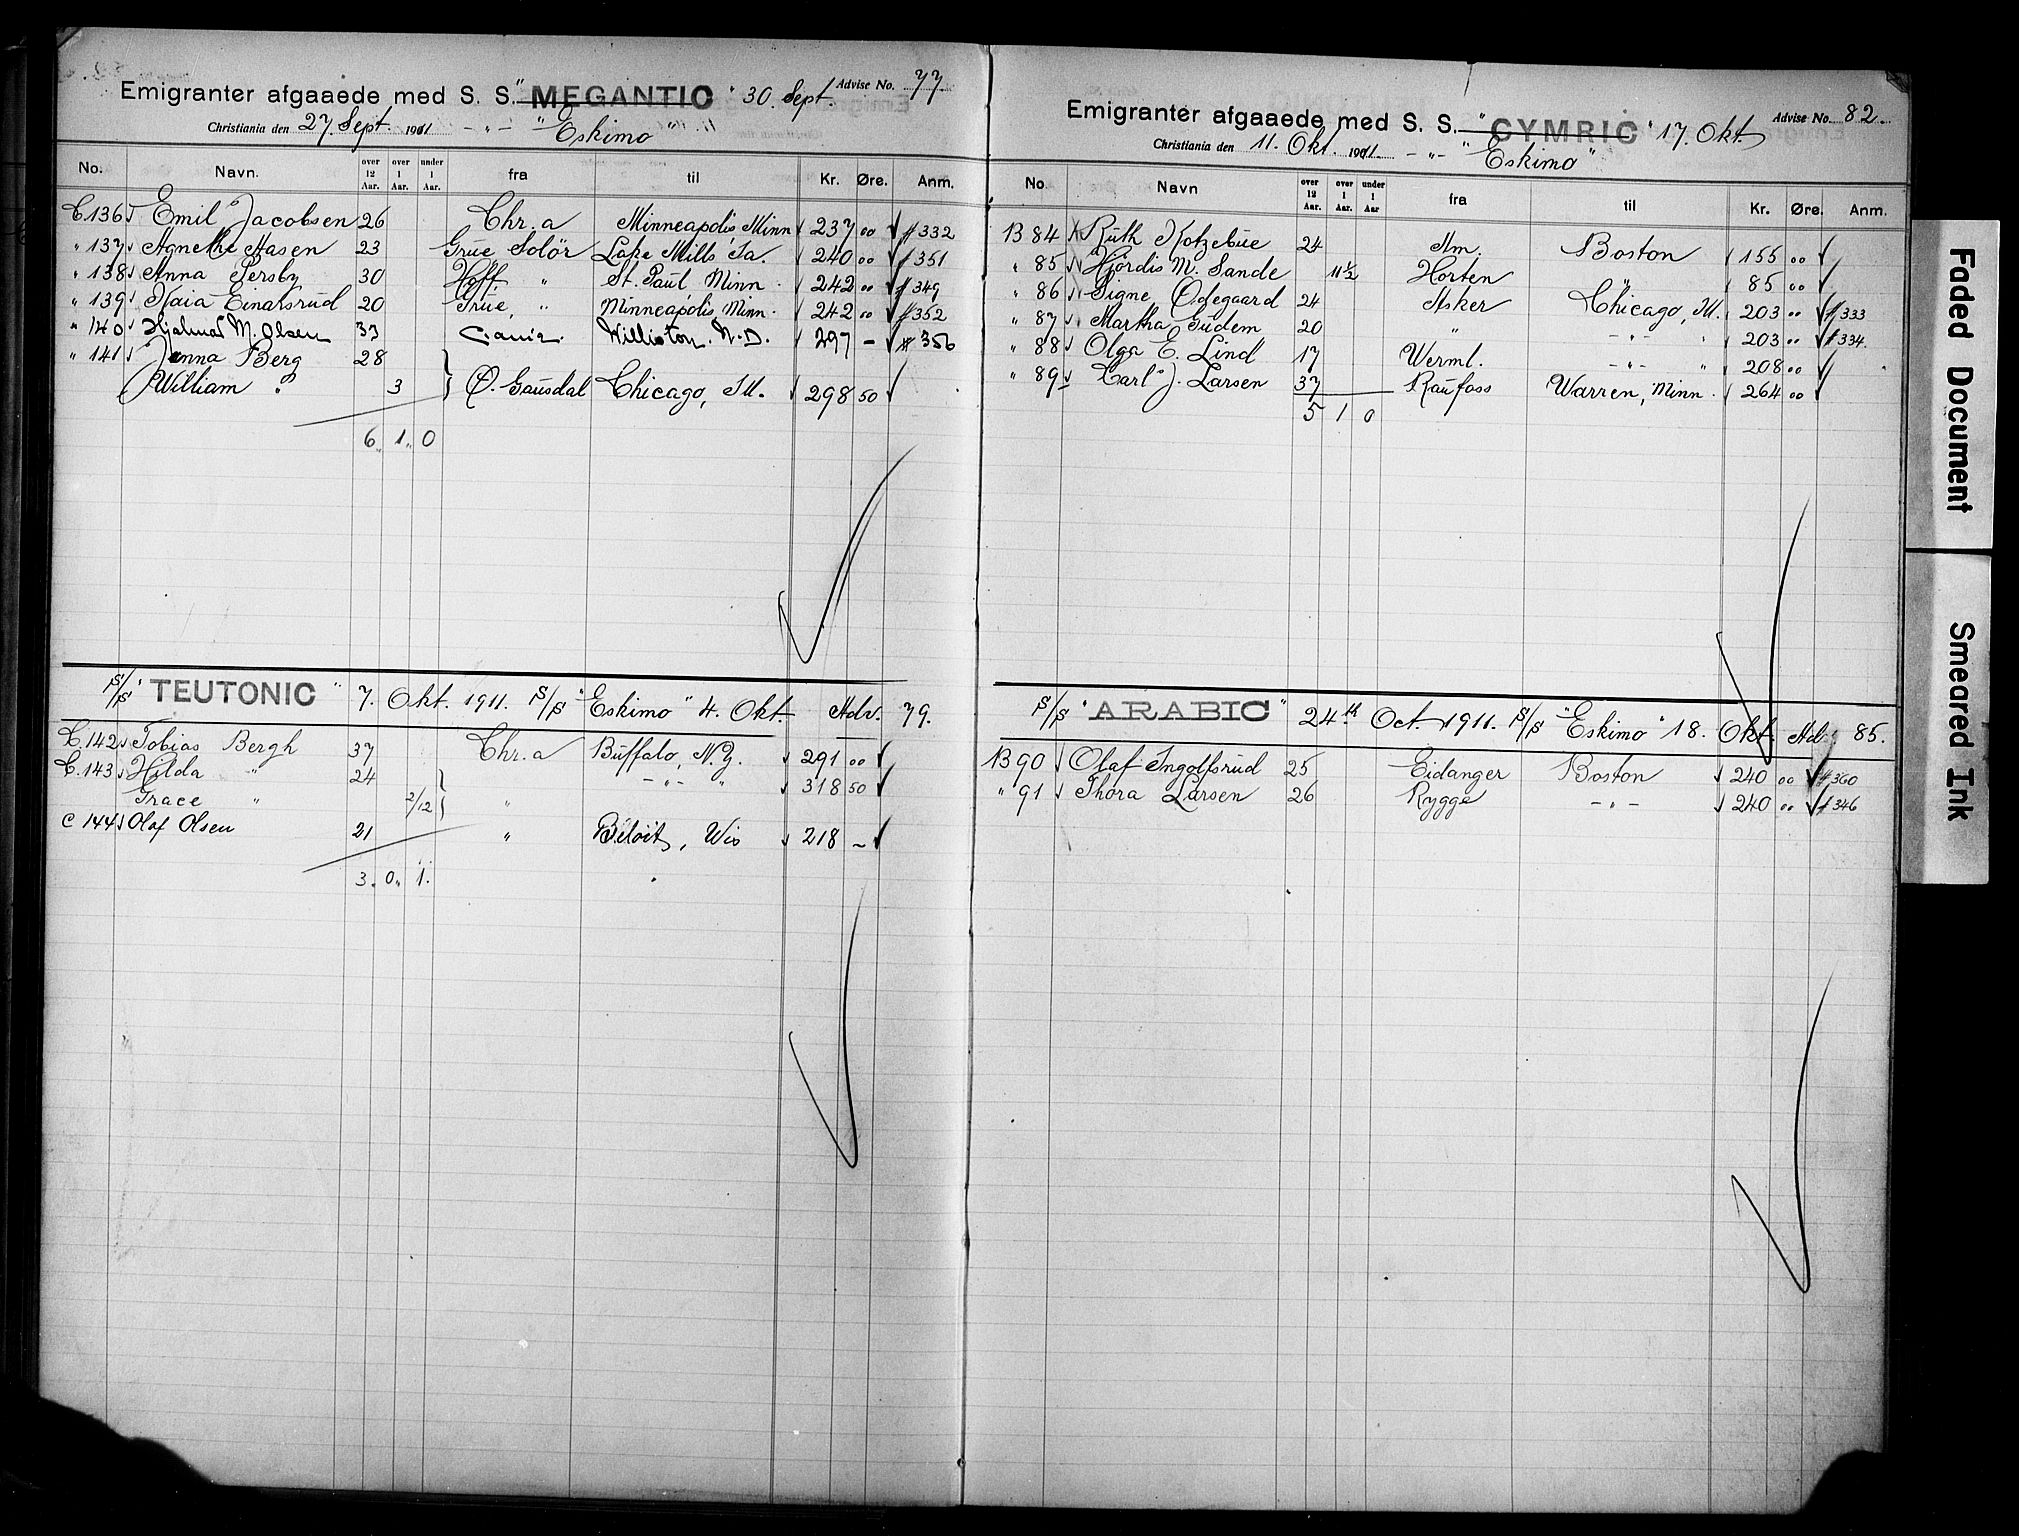 Emigranter afgaaede med S. S. "MEGANTIC" 30. Sept. Advise No. 77
Christiania den 27. Sept. 1911 - " - "Eskimo"
No. Navn. over 12 Aar. over 1 Aar. under 1 Aar. fra til Kr. Øre. Anm.
C 136 Emil Jacobsen 26 Chr.a Minneapolis Minn 237 00 # 332
" 137 Agnethe Aasen 23 Grue Solör Lake Mills Ia. 240 00 # 351
" 138 Anna Persby 30 Hoff. " St. Paul Minn. 242 00 # 349
" 139 Kaia Einarsrud 20 Grue, " Minneapolis Minn. 242 00 # 352
" 140 Hjalmar M. Olsen 33 Williston. N.D. 297 - # 356
" 141 Jenna Berg 28
William " 3 Ö. Gausdal Chicago, Ill. 298 50
6 " 1 " 0
S/S "TEUTONIC" 7. Okt. 1911. S/S "Eskimo" 4. Okt. Adv. 79.
C. 142 Tobias Bergh 37 Chr.a Buffalo, N.Y. 291 00
C. 143 Hilda " 24 - " - " 318 50
Grace " 2/12 "
C 144 Olaf Olsen 21 " Beloit, Wis 218 -
3. 0. 1.
Emigranter afgaaede med S. S. "CYMRIC" 17. Okt. Advise No. 82.
Christiania den 11. Okt. 1911. - " - "Eskimo"
No. Navn over 12 Aar. over 1 Aar. under 1 Aar fra til Kr. Øre. Anm.
B 84 Ruth Kotzebue 24 Am. Boston 155 00
" 85 Hjördis M. Sande 11 1/2 Horten " 85 00
" 86 Signe Ödegaard 24 Asker Chicago, Ill. 203 " # 333
" 87 Martha Gudem 20 " - " - " 203 00 # 334
" 88 Olga E. Lind 17 Werml. - " - " 208 00
" 89 Carl J. Larsen 37 Raufoss Warren, Minn. 264 00
5 1 0
S/S "ARABIC" 24th Oct. 1911. S/S "Eskimo" 18. Okt. Adv. 85.
B 90 Olaf Ingolfsrud 25 Eidanger Boston 240 00 # 360
" 91 Thora Larsen 26 Rygge - " - 240 " # 346
Faded Document
Smeared Ink